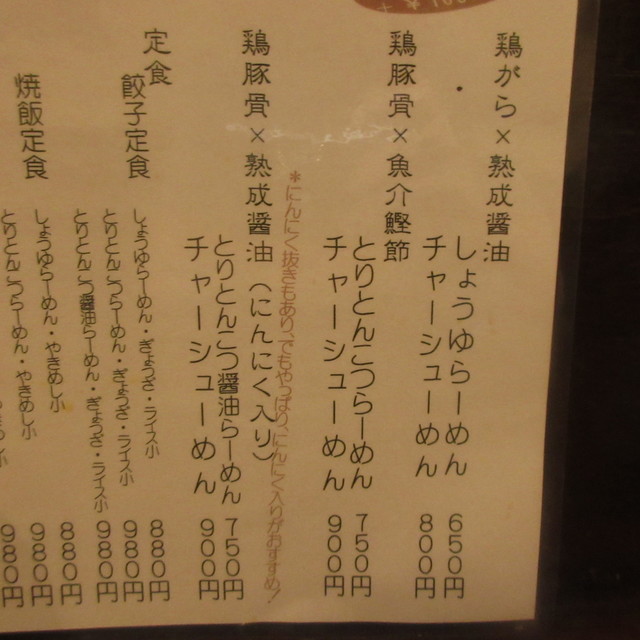 鶏がら×熟成醤油
しょうゆらーめん 650円
チャーシューめん 800円
鶏豚骨×魚介鰹節
とりとんこつらーめん 750円
チャーシューめん 900円
＊にんにく抜きもあり、でもやっぱり、にんにく入りがおすすめ！
鶏豚骨×熟成醤油（にんにく入り）
とりとんこつ醤油らーめん 750円
チャーシューめん 900円
定食
餃子定食
しょうゆらーめん・ぎょうざ・ライス小 880円
とりとんこつらーめん・ぎょうざ・ライス小 980円
とりとんこつ醤油らーめん・ぎょうざ・ライス小 980円
焼飯定食
しょうゆらーめん・やきめし小 880円
とりとんこつらーめん・やきめし小 980円
980円